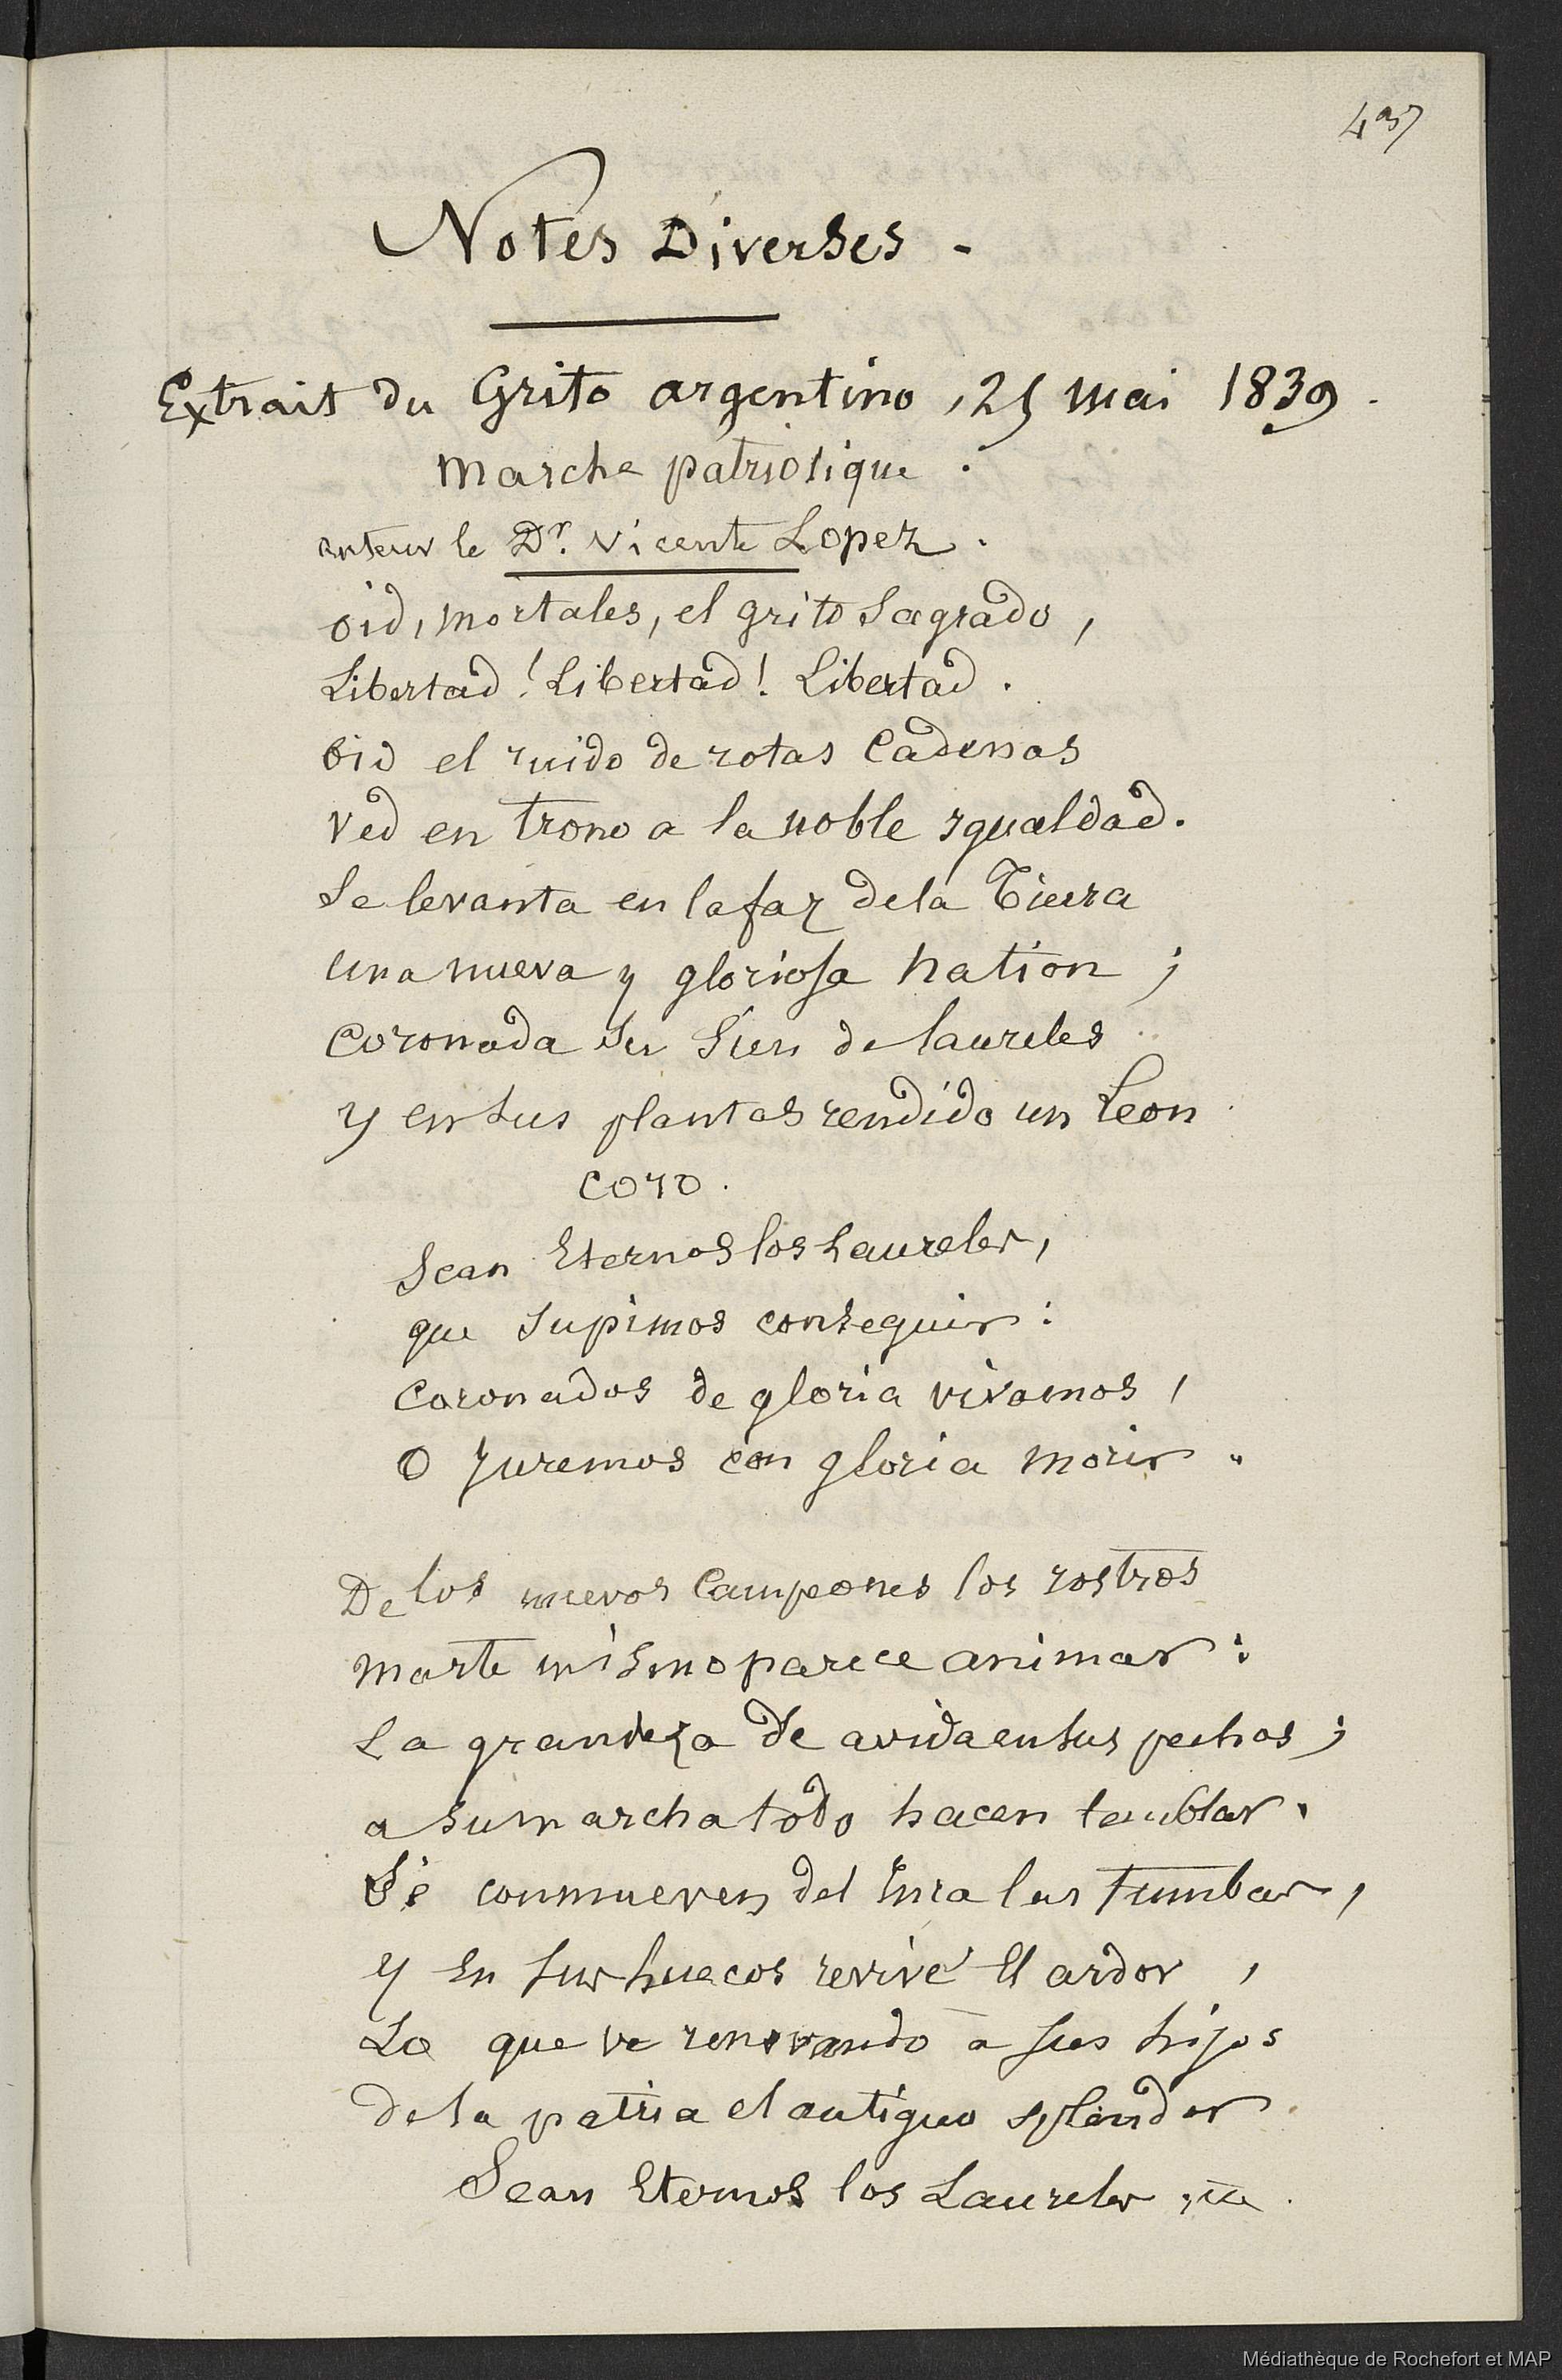 437
Notes Diverses -
Extrait du Grito argentino, 25 mai 1839.
Marche patriotique.
auteur le Dr. Vicente Lopez.
oid, mortales, el grito sagrado,
Libertad! Libertad! Libertad.
oid el ruido de rotas Cadenas
Ved en trono a la noble ygualdad.
Se levanta en la faz de la Tierra
una nueva y gloriosa nation;
Coronada su sien de laureles
y en sus plantas rendido un Leon
coro.
Sean Eternos los Laureles,
que supimos conseguir:
Coronados de gloria vivamos,
O Juremos con gloria morir.
De los nuevos Campeones los rostros
Marte mismo parece animar:
La grandeza de anida en sus pechos;
a su marcha todo hacen temblar.
Se conmueven del Inca las tumbas,
y En sus huecos revive El ardor,
Lo que ve renovando à sus hijos
de la patria el antiguo splendor.
Sean Eternos los Laureles, etc.
Médiathèque de Rochefort et MAP